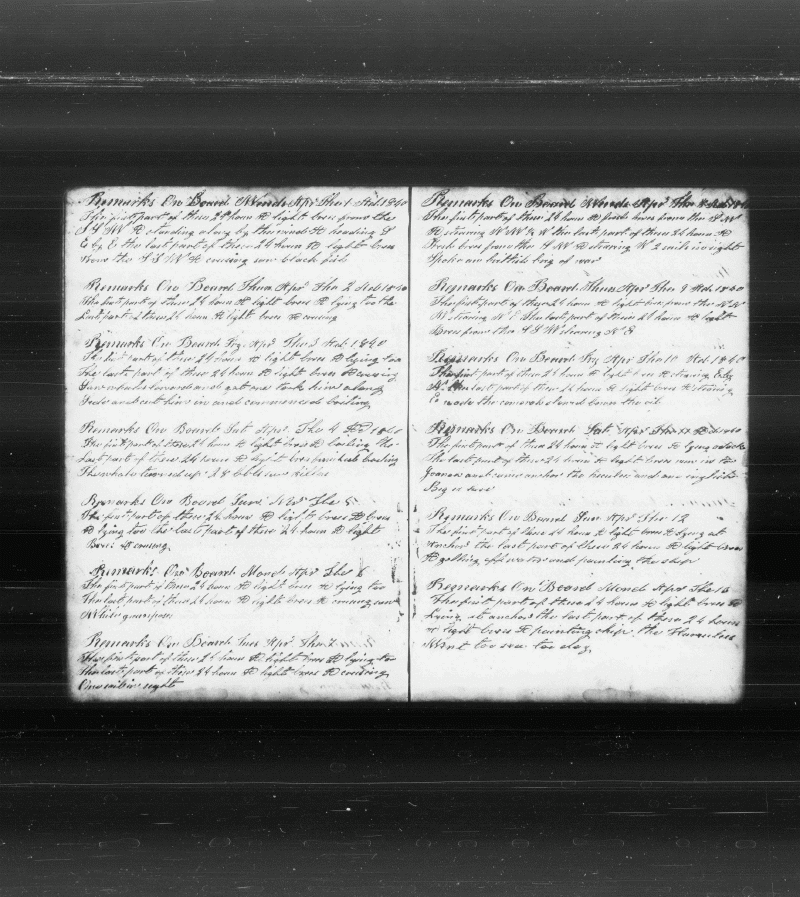 Remarks On Board Wends Apr The 1 Sed 1840
The first part of these 24 hours light bres from the
S S W standing along by the wind heading S
E by E the last part of these 24 hours light bres
from the S S W cruising saw black fish
Remarks On Board Thurs Apr The 2 Sed 1840
The first part of these 24 hours light bres lying too the
Last part of these 24 hours light bres cruising
Remarks On Board Fry Apr The 3 Sed 1840
The first part of these 24 hours light bres lying too
The last part of these 24 hours light bres cruising
Saw whales lowered and got one took him along
side and cut him in and commenced boiling
Remarks On Board Sat Apr The 4 Sed 1840
The first part of these 24 hours light bres boiling the
Last part of these 24 hours light bres finished boiling
The whale turned up 28 bbls
Remarks On Board Sun Apr The 5
The first part of these 24 hours light bres
lying too the last part of these 24 hours light
Bres cruising
Remarks On Board Mond Apr The 6
The first part of these 24 hours light bres lying too
The last part of these 24 hours light bres cruising
White
Remarks On Board Tues Apr The 7
The first part of these 24 hours light bres lying too
the last part of these 24 hours light bres cruising
One sail in sight
Remarks On Board Wends Apr The 8 Sed 1840
The first part of these 24 hours fresh bres from the S W
stearing N W & W the last part of these 24 hours
Fresh bres from the S W stearing W 2 sails in sight
Spoke an british brig of war
Remarks On Board Thurs Apr The 9 Sed 1840
The first part of these 24 hours light bres from the N N
W stearing N E the last part of these 24 hours light
Bres from the S S W stearing N E
Remarks On Board Fry Apr The 10 Sed 1840
The first part of these 24 hours light bres stearing E by
N the last part of these 24 hours light bres stearing
E made the down the oil
Remarks On Board Sat Apr The 11
The first part of these 24 hours light bres lying
the last part of these 24 hours light bres run in to
and came anchor the and one english
Brig is here
Remarks On Board Sun Apr The 12
The first part of these 24 hours light bres lying at
anchor the last part of these 24 hours light bres
getting off water and painting the ship
Remarks On Board Mond Apr The 13
The first part of these 24 hours light bres
Lying at anchor the last part of these 24 hours
light bres painting ship the
Went to sea to day